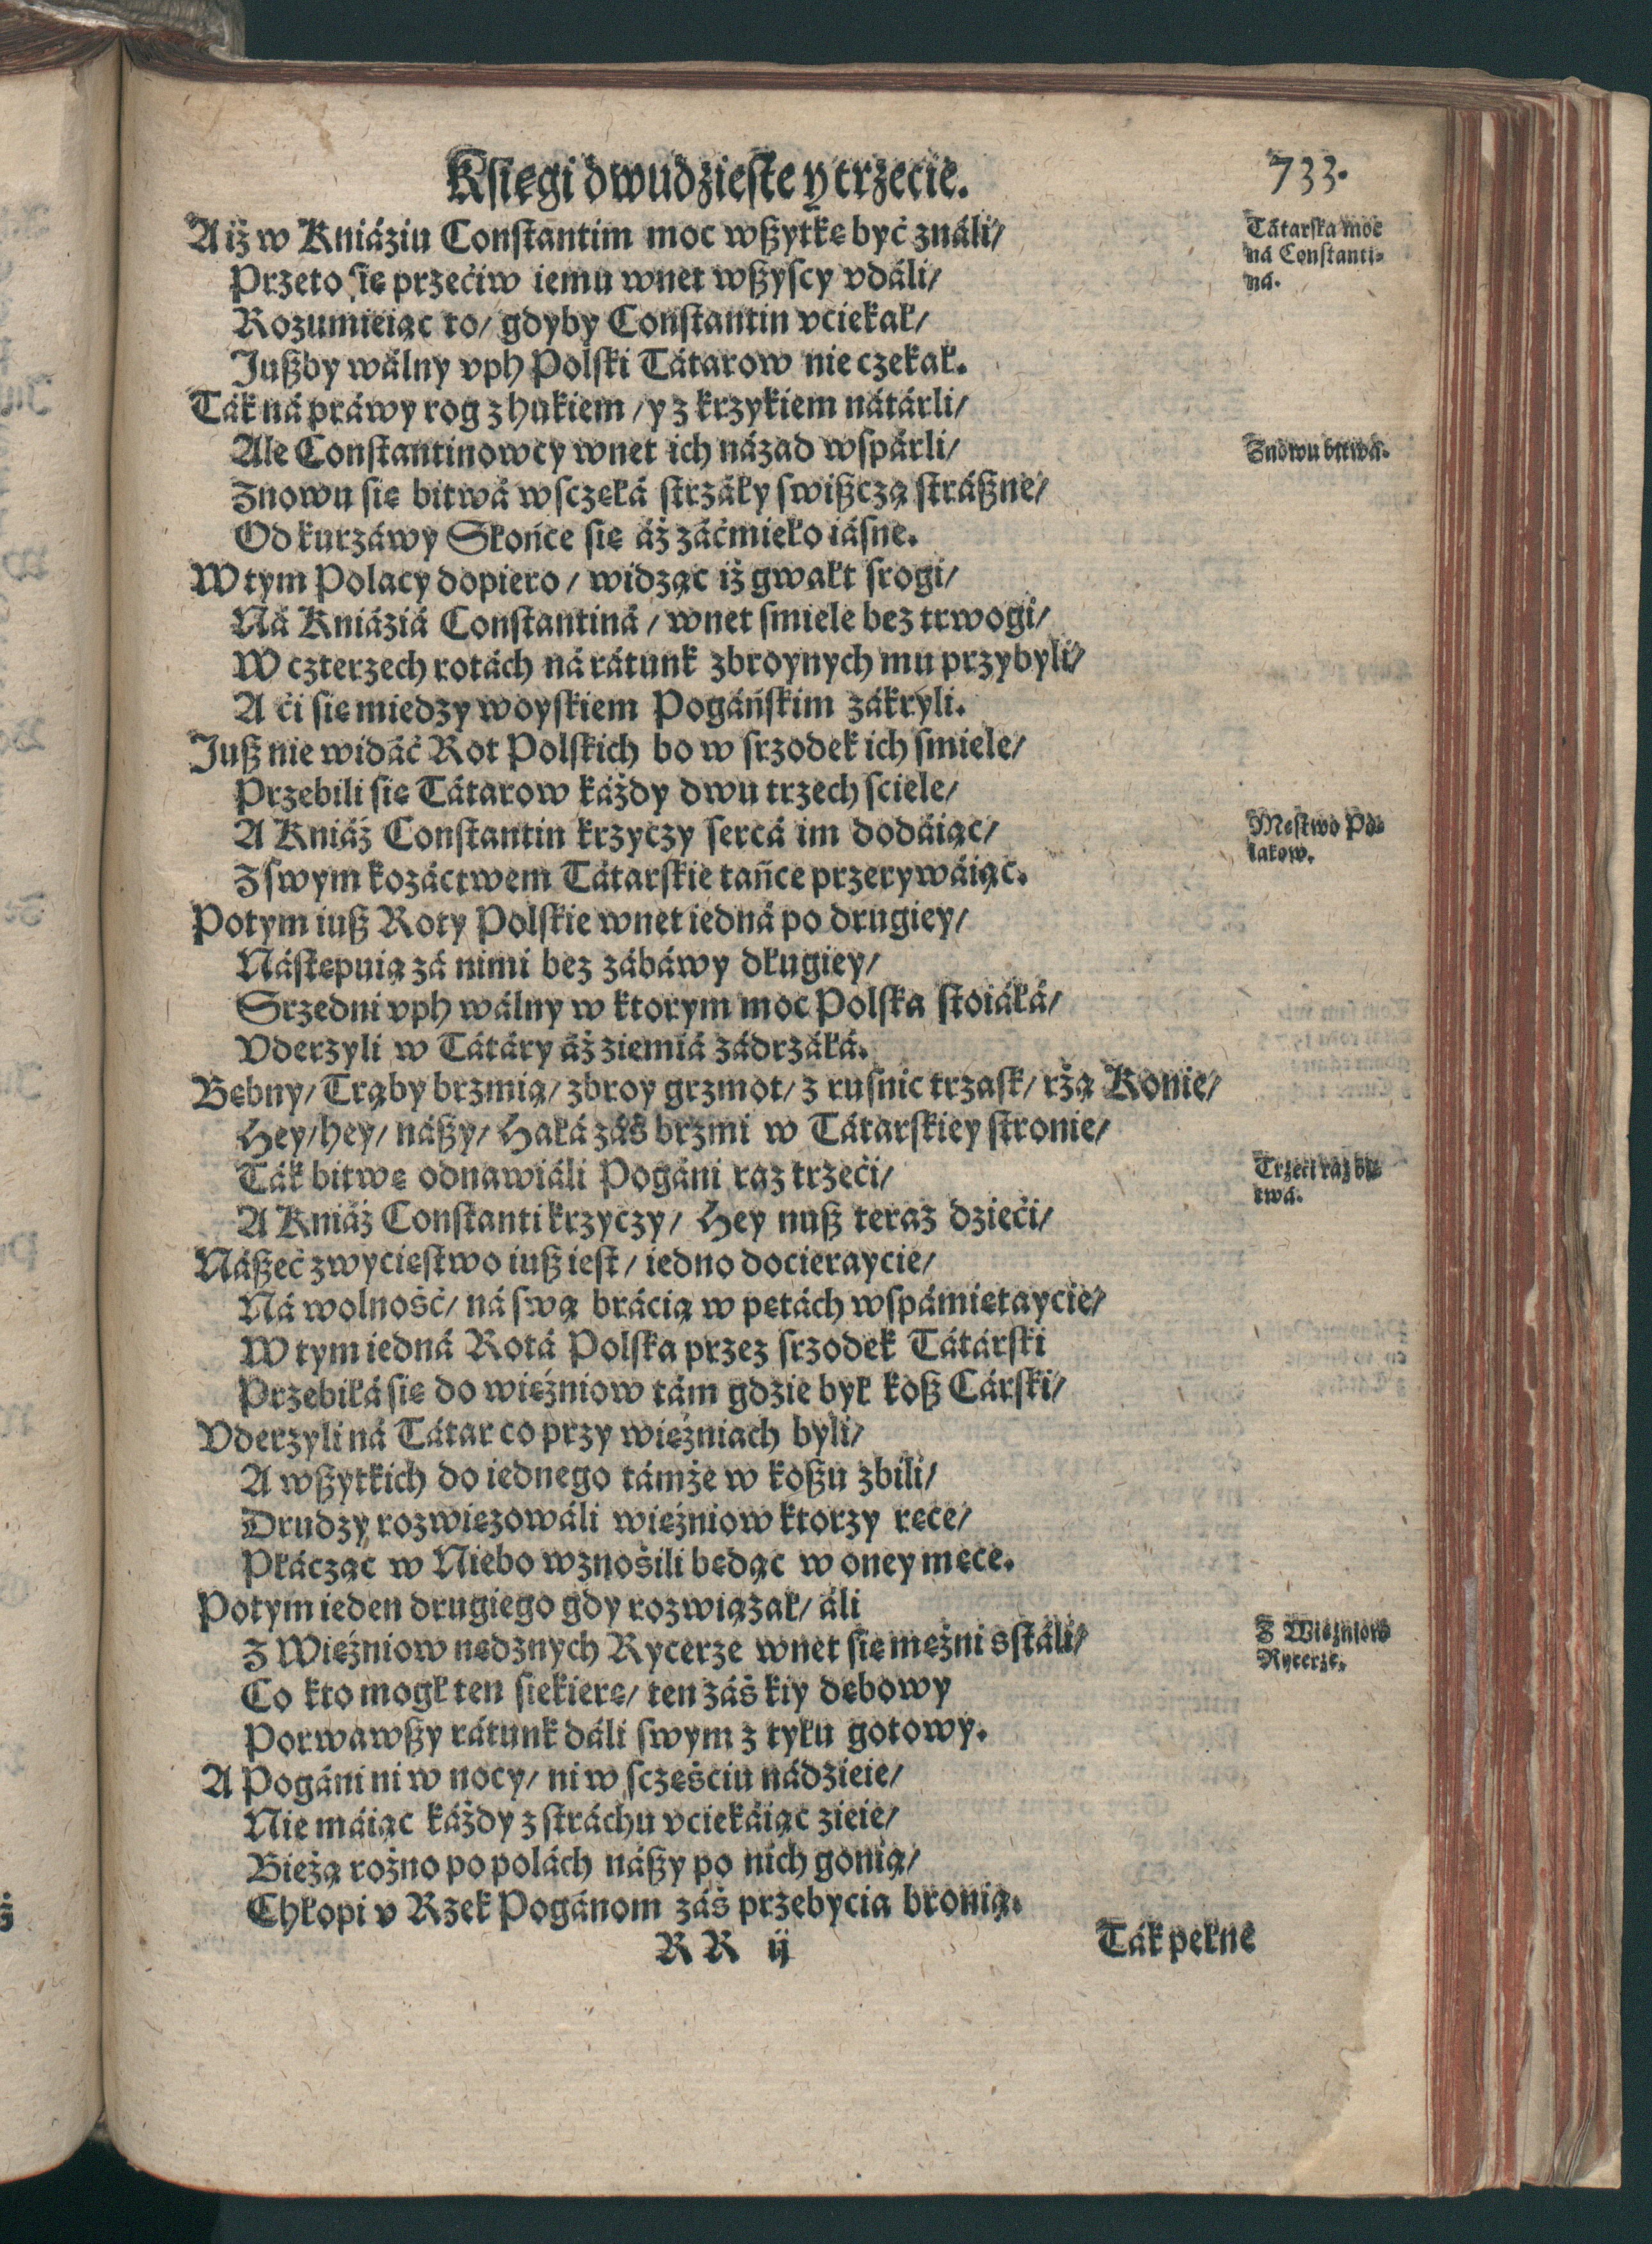 Księgi dwudzieste y trzecie.
733.
A iż w Kniáziu Constantim moc wßytkę być ználi/
Przeto się przećiw iemu wnet wßyscy vdáli/
Rozumieiąc to/ gdyby Constantin vciekał/
Jußby wálny vph Polski Tátarow nie czekał.
Ták ná práwy rog z hukiem/ y z krzykiem nátárli/
Ale Constantinowcy wnet ich názad wspárli/
Znowu się bitwá wsczęłá strzáły swißczą stráßne/
Od kurzáwy Słońce się áż záćmieło iásne.
W tym Polacy dopiero/ widząc iż gwałt srogi/
Ná Kniáziá Constantiná/ wnet smiele bez trwogi/
W czterzech rotách ná rátunk zbroynych mu przybyli/
A ći się miedzy woyskiem Pogáńskim zákryli.
Juß nie widáć Rot Polskich bo w srzodek ich smiele/
Przebili się Tátarow káżdy dwu trzech sciele/
A Kniáź Constantin krzyczy sercá im dodáiąc/
Z swym kozáctwem Tátarskie tańce przerywáiąc.
Potym iuß Roty Polskie wnet iedná po drugiey/
Nástępuią zá nimi bez zábáwy długiey/
Srzedni vph wálny w ktorym moc Polska stoiáłá/
Vderzyli w Tátáry áż ziemiá zádrzáłá.
Bębny/ Trąby brzmią/ zbroy grzmot/ z rusnic trzask/ rżą Konie/
Hey/ hey/ náßy/ Háłá záś brzmi w Tátarskiey stronie/
Ták bitwę odnawiáli Pogáni raz trzeći/
A Kniáź Constanti krzyczy/ Hey nuß teraz dzieći/
Náßeć zwycięstwo iuß iest/ iedno docieraycie/
Ná wolność/ ná swą brácią w pętách wspámiętaycie/
W tym iedná Rotá Polska przez srzodek Tátárski
Przebiłá się do więźniow tám gdzie był koß Cárski/
Vderzyli ná Tátar co przy więźniach byli/
A wßytkich do iednego támże w koßu zbili/
Drudzy rozwięzowáli więźniow ktorzy ręce/
Płácząc w Niebo wznośili będąc w oney męce.
Potym ieden drugiego gdy rozwiązał/ áli
Z Więźniow nędznych Rycerze wnet się mężni sstáli/
Co kto mogł ten siekierę/ ten záś kiy dębowy
Porwawßy rátunk dáli swym z tyłu gotowy.
A Pogáni ni w nocy/ ni w sczęśćiu nádzieie/
Nie máiąc káżdy z stráchu vciekáiąc zieie/
Bieżą rożno po polách náßy po nich gonią/
Chłopi v Rzek Pogánom záś przebycia bronią.
RR ij
Ták pełne
Tátarska moc
ná Constanti-
ná.
Znowu bitwá.
Męstwo Po-
lakow.
Trzeći raz bi-
twá.
Z Więźniow
Rycerze.